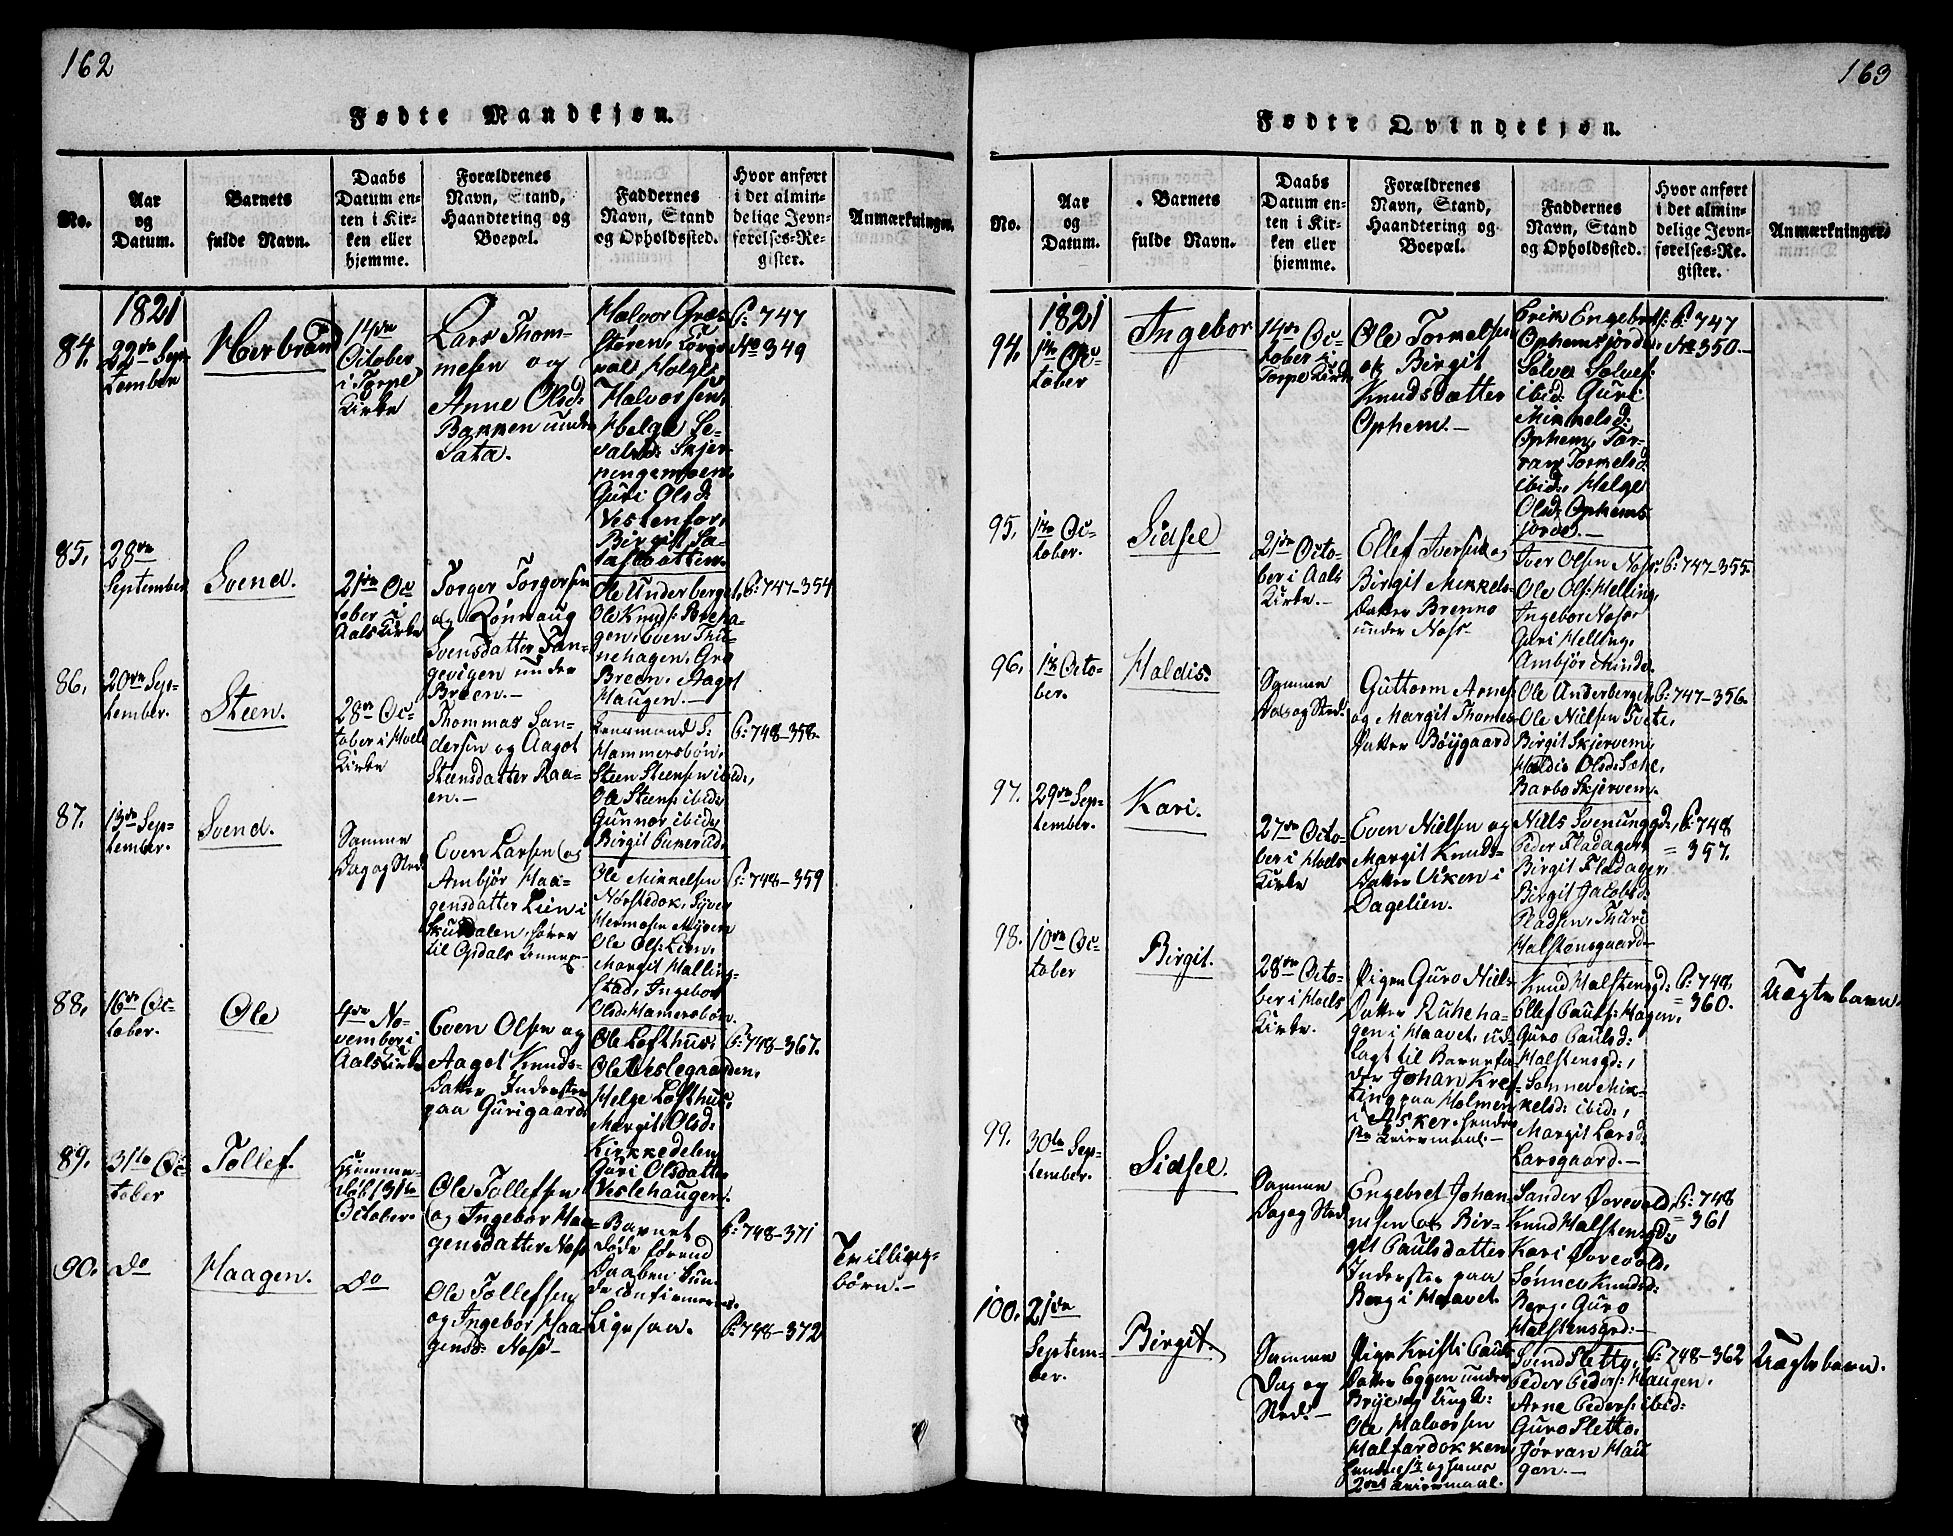 162
Fødte Mandkjøn.
No.
Aar
og
Datum.
Barnets
fulde Navn.
Daabs
Datum en-
ten i Kir-
ken eller
hjemme.
Forældrenes
Navn, Stand,
Haandtering og
Boepæl.
Faddernes
Navn, Stand
og Opholdssted.
Hvor anført
i det almin-
delige Jevn-
førelses-Re-
gister.
Anmærkninger.
84.
1821
22de Sep-
tember
Herbrand
14de
October
i Torpe
Kirke
Lars Thom-
mesen og
Anne Olsd:
Bakken under
Sata.
Halvor Græs-
støren, Torge
Helge
Halvorsen,
Helge Se-
valsd: Skjer-
pingemoen,
Guri Olsd:
Vestenfor,
Birgit Sa-
tasdatter.
P: 747
No 349
85.
28de
September
Svend.
21de Oc-
tober i
Aals Kirke
Torger Torgersen
og Rønnaug
Svensdatter
gevigen under
Breen.—
Ole Underberget,
Ole Knuds: Breha-
gen, Even Thu-
nehagen, Gro
Breen, Aagot
Haugen.—
P: 747-354
86.
20de Sep-
tember.
Steen.
28de Oc-
tober i Hoels
Kirke
Thommas San-
dersen og Aagot
Steensdatter Raa-
en.—
Hammersbøn,
Steen Steensen ibid:,
Ole Steens: ibid:,
Gunnor ibid:,
Birgit
P: 748-358.
87.
13de Sep-
tember.
Svend.
Samme
Dag og Sted.
Even Larsen og
Ambjør Haa-
gensdatter Lien i
Skurdalen, hører
til Opdals Annex.—
Ole Mikkelsen
Nørstedok, Syver
Hermosen Myren
Ole Ols: Lien,
Margit Halling-
stad, Ingebor
Olsd: Hamersbøn.
P: 748-359
88.
16de Oc-
tober.
Ole
4de No-
vember i
Aals Kirke
Even Olsen og
Aagot Knuds-
datter Inderster
paa Gurigaard.
Ole Lofthus:
Ole Veslegaarden,
Helge Lofthus,
Margit Olsd:
Kirkkedelen
Guri Olsdatter
Veslehaugen.
P: 748-367.
89.
31te Oc-
tober
Tollef.
Hjemme-
døbt 31te
October.
Ole Tollefsen
og Ingebor Haa-
gensdatter Noss
Barnet
døde førend
Daaben kun-
de confirmeres.
P: 748-371
90.
do
Haagen.
do
Ole Tollefsen
og Ingebor Haa-
gensd: Noss—
Ligesaa.
P: 748-372
Tvillinge-
børn.—
163
Fødte Qvindekjøn.
No.
Aar
og
Datum.
Barnets
fulde Navn.
Daabs
Datum en-
ten i Kir-
ken eller
hjemme.
Forældrenes
Navn, Stand,
Haandtering og
Boepæl.
Faddernes
Navn, Stand
og Opholdssted.
Hvor anført
i det almin-
delige Jevn-
førelses-Re-
gister.
Anmærkninger.
94.
1821
1ste Oc-
tober
Ingebor
14de Oc-
tober i
Torpe Kirke
Ole Tormelsen
og Birgit
Knudsdatter
Ophem.—
Erik Engebrets:
Ophemsjorde,
Solve Solves:
ibid: Guri
Mikkelsd:
Ophem, Tor-
ran Tormelsd:
ibid:, Helge
Olsd: Ophems-
jorde.—
P: 747
No 350.—
95.
1ste Oc-
tober.
Sidsel
21de Octo-
ber i Aals
Kirke.—
Ellef Iversen og
Birgit Mikkels-
datter Brenno
under Noss—
Iver Olsen Noss,
Ole Ols: Helling,
Ingebor Noss
Guri Helling,
Ambjør Hinde.
P: 747-355.
96.
1ste Octo-
ber.
Haldis.
Samme
Dag og Sted.
Guttorm Arnes:
og Margit Thomes-
datter Bøygaard
Ole Anderberget,
Ole Nielsen Tveto,
Birgit Skjervem,
Haldis Olsd:
Barbo Skjervem.
P: 747-356.
97.
29de Sep-
tember.
Kari.
27de Octo-
ber i Hoels
Kirke
Even Nielsen og
Margit Knuds-
datter Viken i
Dagelien.
Niels Svenunggd.,
Peder Fladager,
Birgit Fladager,
Birgit Jacobsd:
Pladsen, Thuri
Halstensgaard.—
P: 748
= 357.
98.
10de Oc-
tober
Birgit.
28de Octo-
ber i Hoels
Kirke.
Pigen Guro Niels-
datter Ruheha-
gen i Haavet, ud-
lagt til Barnefa-
der Johan
paa Holmen
i Asker,
Leiermaal.—
Knud Halstensgd:
Ellef Pauls: Hagen,
Guro Paulsd:
Halstensgd:,
Sønnev Mik-
kelsd: ibid:,
Margit Larsd:
Larsgaard.—
P: 748,
= 360.
Uægte barn.
99.
30te Sep-
tember.
Sidsel.
Samme
Dag og Sted.
Engebret Johan-
nesen og Bir-
git Paulsdatter
Inderster paa
Berg i Haavet.
Sander Ørevold,
Knud Halstensgd:
Kari Ørevold,
Sønnev Knudsd:
Berg, Guro
Halstensgd:—
P: 748
= 361
100.
21de
Septem-
ber.
Birgit.
Samme
Dag og
Sted.—
Pige Kristi Pauls-
datter Eggen under
Brye og Ungk:
Ole Halvorsen
Halfardokken,
hendes 1ste og hans
2det Leiermaal.
Svend Sletto,
Peder Peders: Haugen,
Arne Peders: ibid:
Guro Sletto,
Jørran Hau-
gen.—
P: 748-362
Uægte barn.